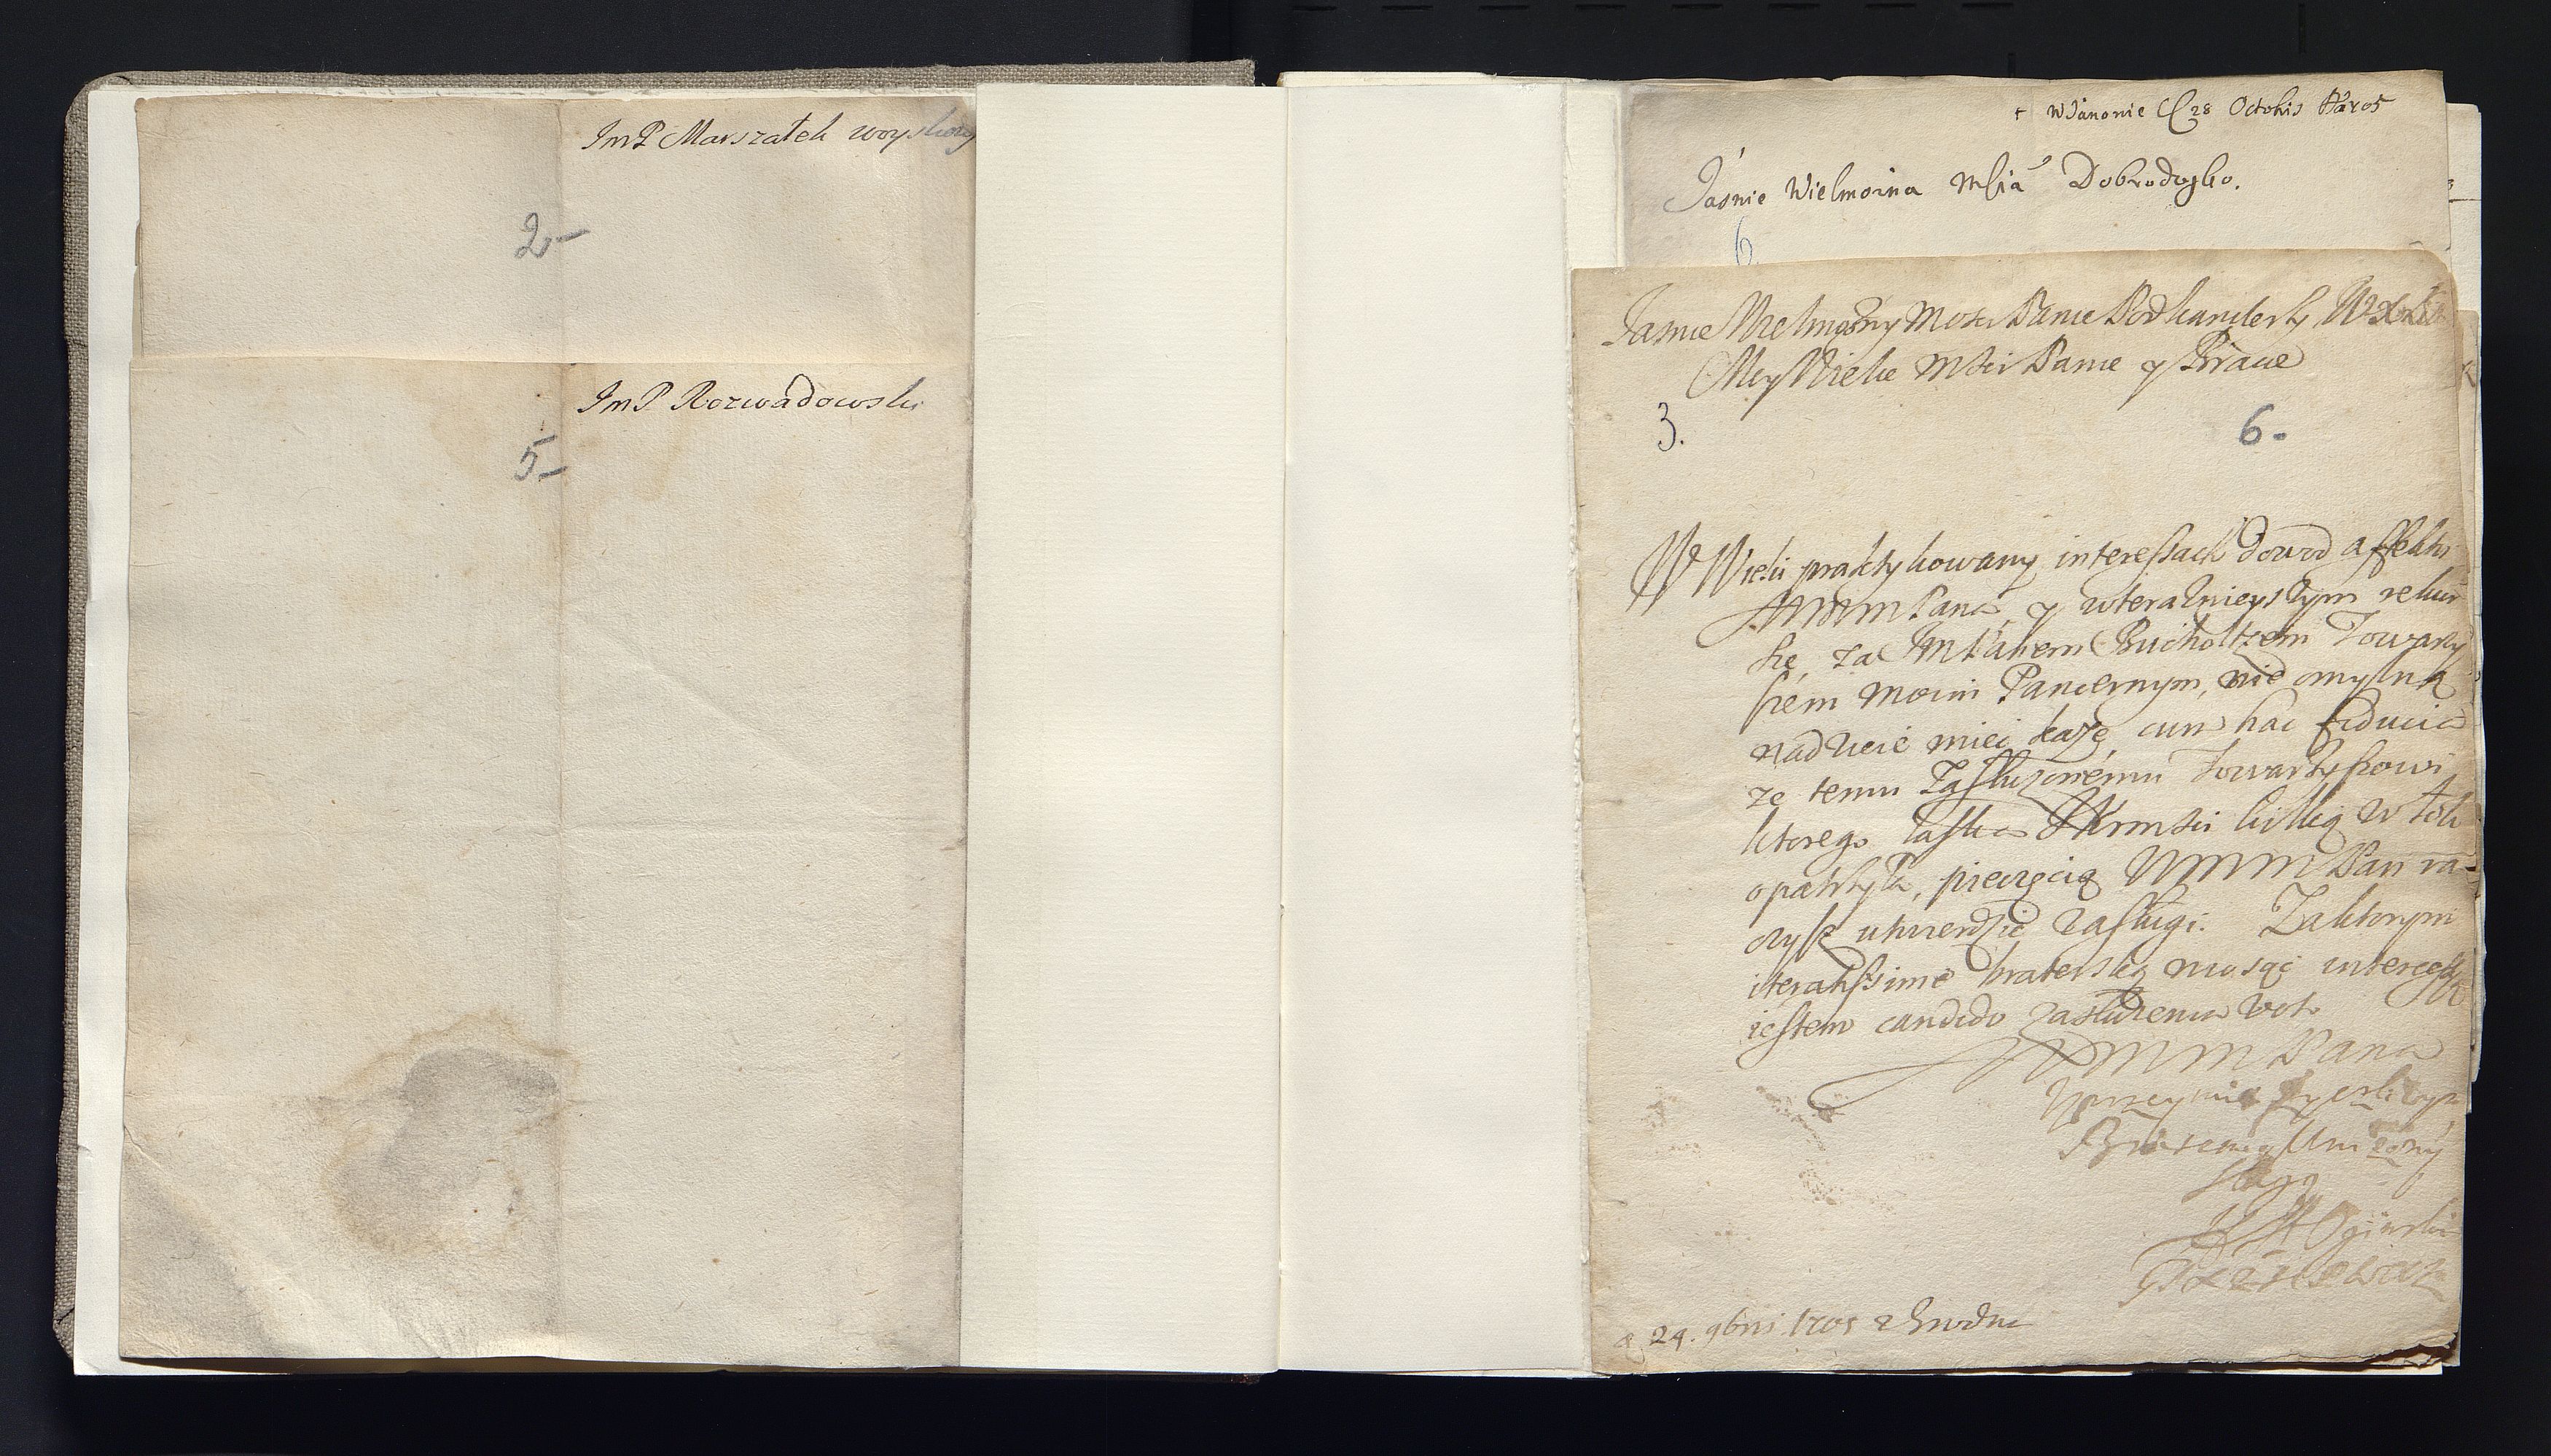 ImP Marszałek woyskowy
2
ImP Rozwadowski
5
+ WJanonie 28 Octobris
Jaśnie Wielmożna Mścia Dobrodzyko.
6
Jasnie Wielmozny Mosci Panie Podkanclerzy
Moy Wielce Msci Panie y Bracie
3.
6.
W Wielu praktykowany interessach dowod affektu
WMMPana, y wteraznieyszym rekur
sie, za ImPanem Bucholtzem Towarzy
szem moim Pancernym, nie omylną
nadzieie miec każe, cum hac fiducia
ze temu Zasłuzonemu Towarzyszowi
ktorego łaska JKrmsci
opatrzyła, pieczęcią WMMPan ra-
czysz utwierdzic zasługi. Zaktorym
iteratissime braterską niosąc intercessyą
iestem candido zasłuzenia voto
WMMPana
Uprzeymie zyczliwym
Bratem y Unizony
sługą
Oginski
24. 9bris 1705 z Grodna